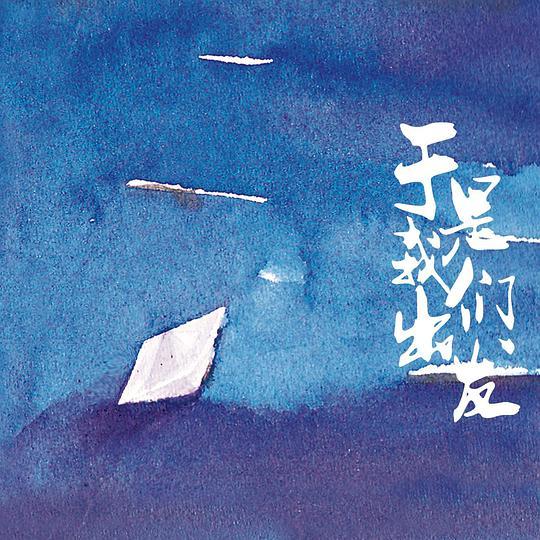 于是
我们
出发